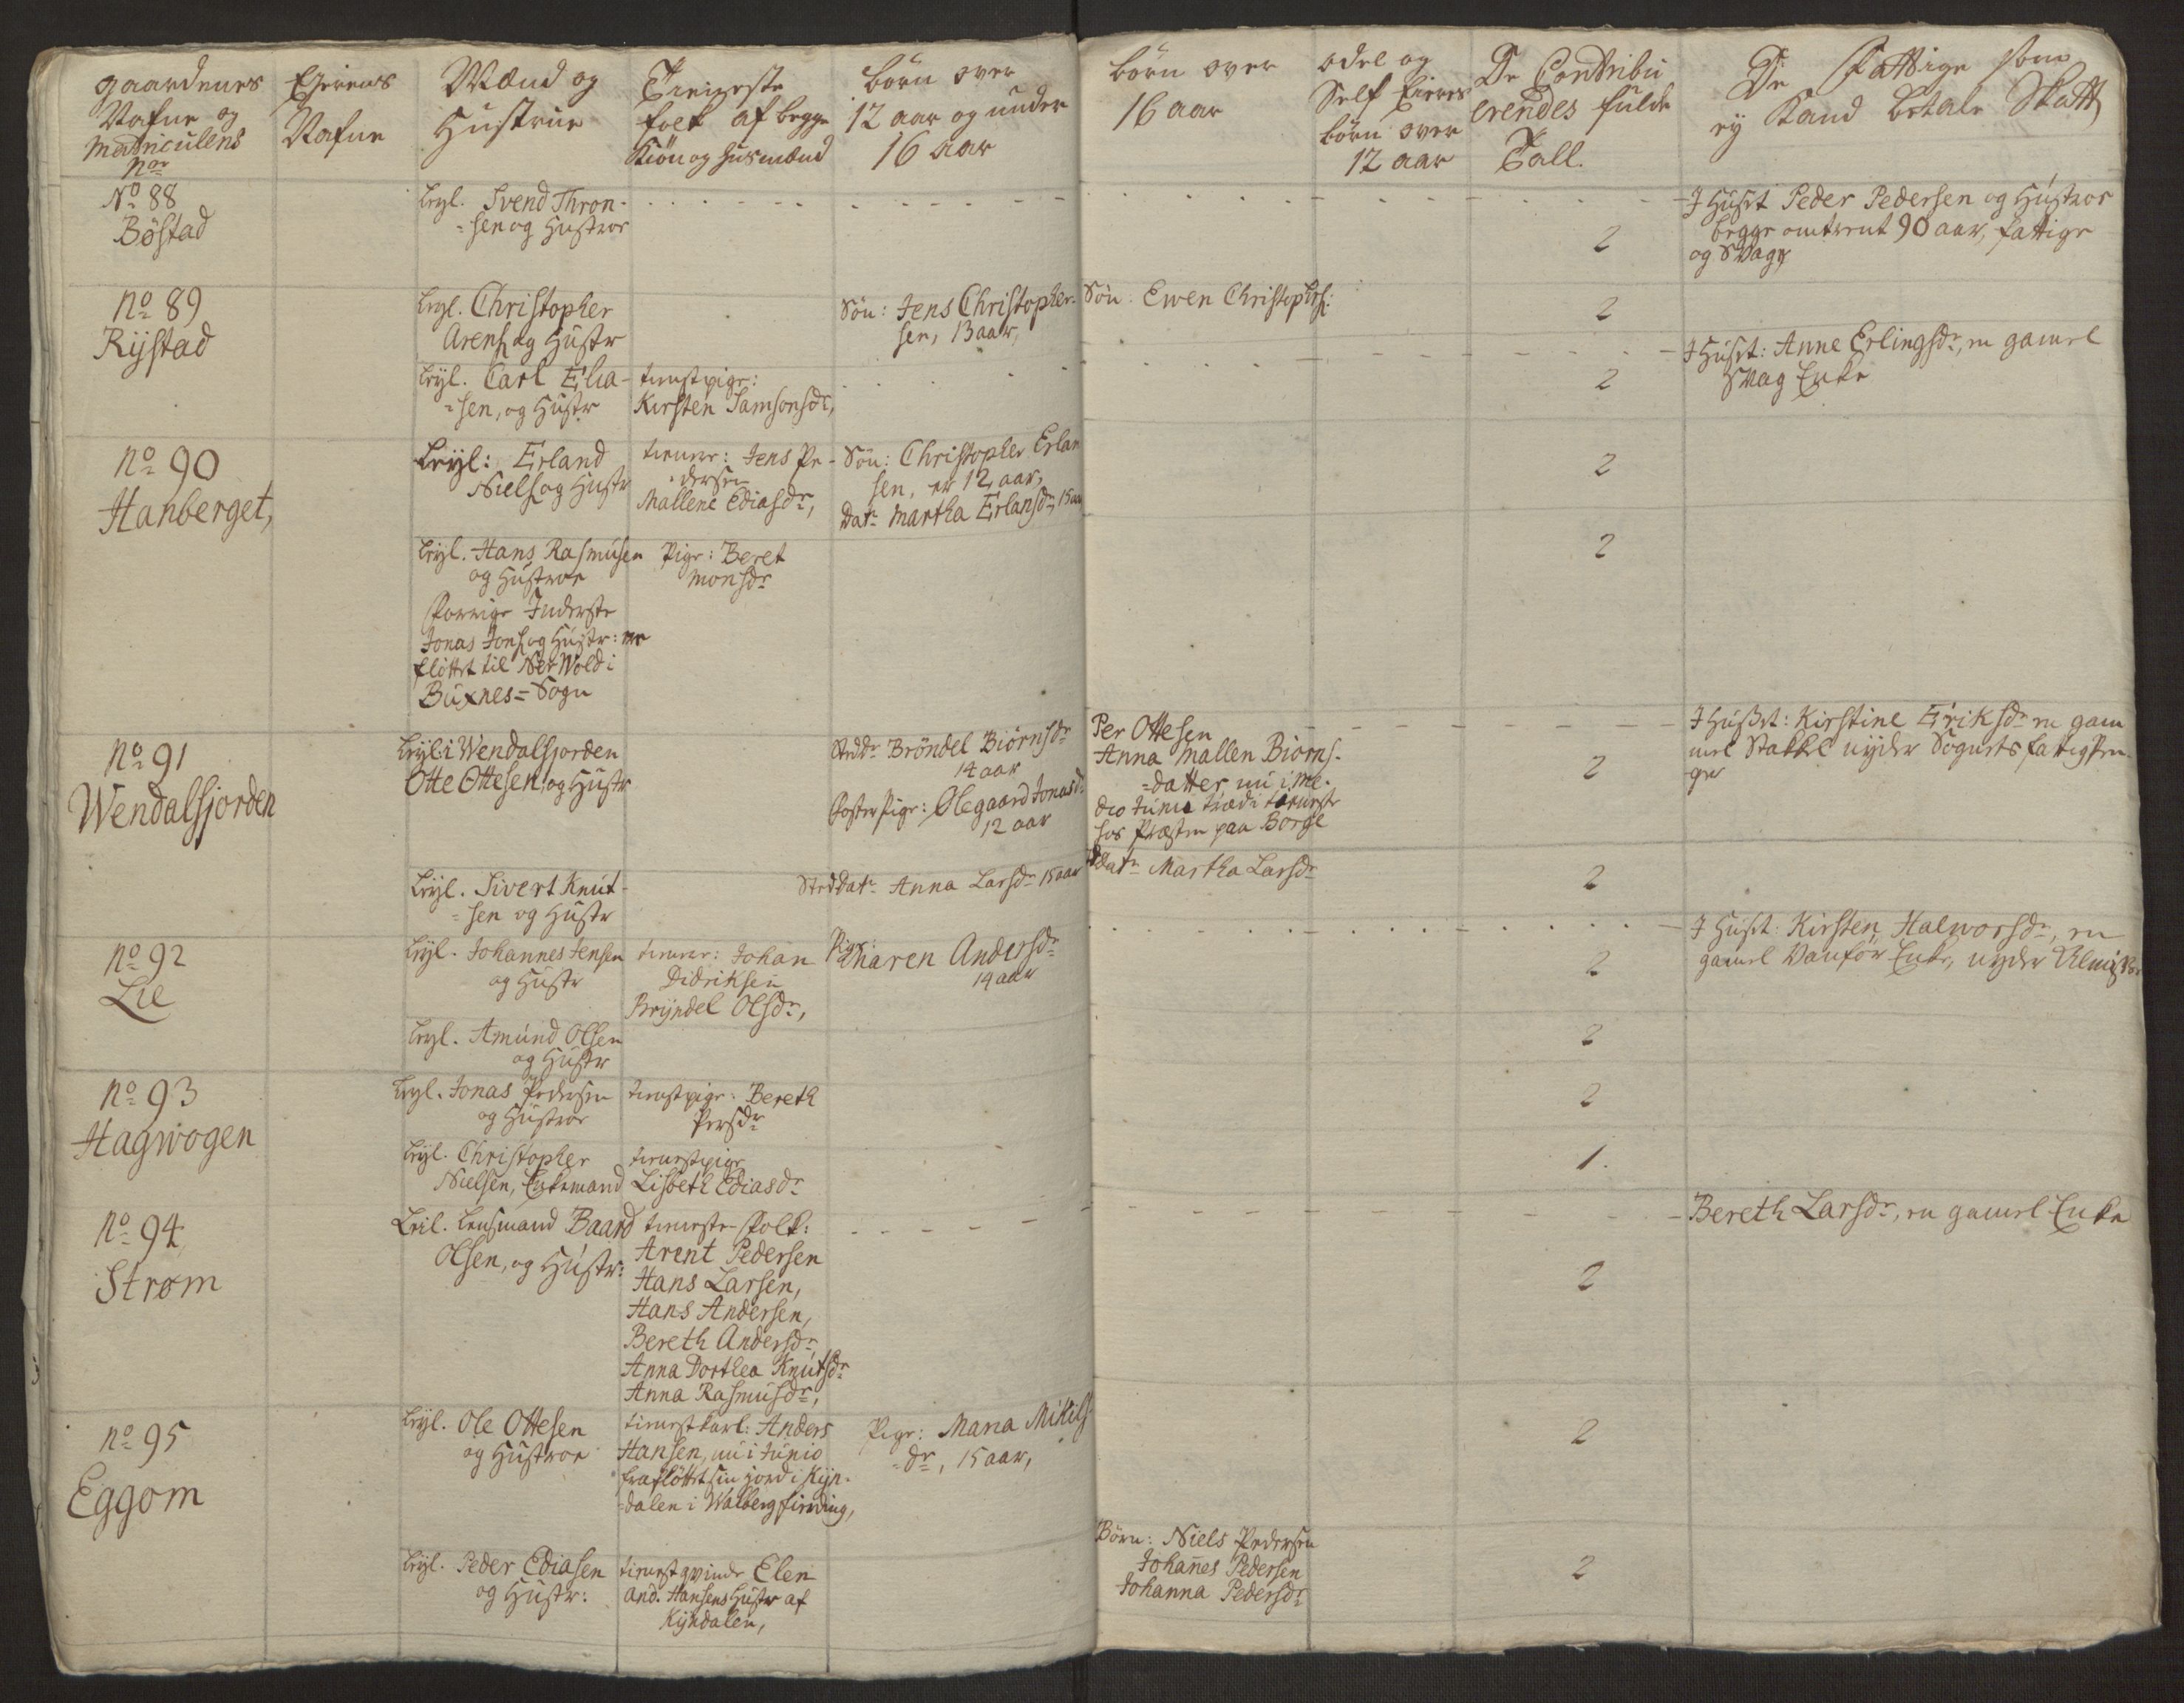 gaardenes
Nafne og
Matriculens
Nor
Ejerens
Nafne
Mænd og
Hustrue
Tieneste
folk af begge
Kiön og Husmænd
börn over
12 aar og under
16 aar
börn over
16 aar
odel og
Self Eieres
börn over
12 aar
De Contribu
erendes fulde
Tall.
De Fattige som
ey Kand betale Skatt
No 88
Böstad
Leyl. Svend Thron-
=sen og Hustroe
2
I Huset Peder Pedersen og Hustroe
begge omtrent 90 aar, fattige
og Svage
No 89
Rÿstad
Leyl. Christopher
Arens. og Hustr
Sön: Jens Christopher-
sen, 13 aar,
Sön: Ewen Christophs:
2
Leyl. Carl Elia-
=sen, og Hustr
tienstpige:
Kirsten Samsonsdr,
2
I Huset: Anne Erlingsdr, en gamel
Svag Enke
No 90
Hanberget,
Leyl: Erland
Niels. og Hustr
tienere: Jens Pe-
=dersen
Mallene Ediasdr,
Sön: Christopher Erlan
sen, er 12 aar,
Datr Martha Erlansdr, 15 aar
2
Leyl. Hans Rasmusen
og Hustroe
Pige: Beret
Monsdr
2
Forrige Inderste
Jonas Jons. og Hustr: er
flöttet til Ner Wold i
Buxnes=Sogn
No 91
Wendalsjorden
Leyl: i Wendalsjorden
Otte Ottesen, og Hustr
Stedr Bröndel Biörnsdr
14 aar
Foster Pige: Olegaard Jonasdr
12 aar
Per Ottesen
Anna Mallen Biorns-
=datter nu i Me-
dio Junii træd i tieneste
hos Præsten paa Borge
2
I Huset: Kirstine Eriksdr en gam
mel Stakkel nÿder Sognets fattig Pen-
ge
Leyl. Sivert Knut-
=sen og Hustr
Sted Datr Anna Larsdr 15 aar
Datr Martha Larsdr
2
No 92
Lie
Leyl. Johannes Jensen
og Hustr
tienere: Johan
Didriksen
Brÿndel Olsdr,
Pige:
Maren Andersdr
14 aar
2
I Huset: Kirsten Halworsdr, en
gamel Vanför Enke, nyder
Leyl. Amund Olsen
og Hustr
2
No 93
Hagwogen
Leyl. Jonas Pedersen
og Hustroe
tienstpige: Bereth
Persdr
2
Leyl. Christopher
Nielsen, Enkemand
tienestpige
Lisbeth Ediasdr
1.
No 94
Strom
Leil. Lensmand Baard
Olsen, og Hustr:
tieneste-Folk:
Arent Pedersen
Hans Larsen,
Hans Andersen,
Bereth Andersdr
Anna Dorthea Knutsdr
Anna Rasmusdr,
2
Bereth Larsdr, en gamel Enke
No 95
Eggom
Leyl. Ole Ottesen
og Hustroe
tienestkarl: Anders
Hansen, nu i Junio
fraflöttet sin jord i Kÿn-
=dalen i Walberg fierding,
Pige: Maria Mikils-
=dr, 15 aar,
2
Leyl. Peder Ediasen
og Hustr:
tienestqvinde Elen
And. Hansens Hustr af
Kÿndalen,
Börn: Niels Pedersen
Johanes Pedersen
Johanna Pedersdr
2